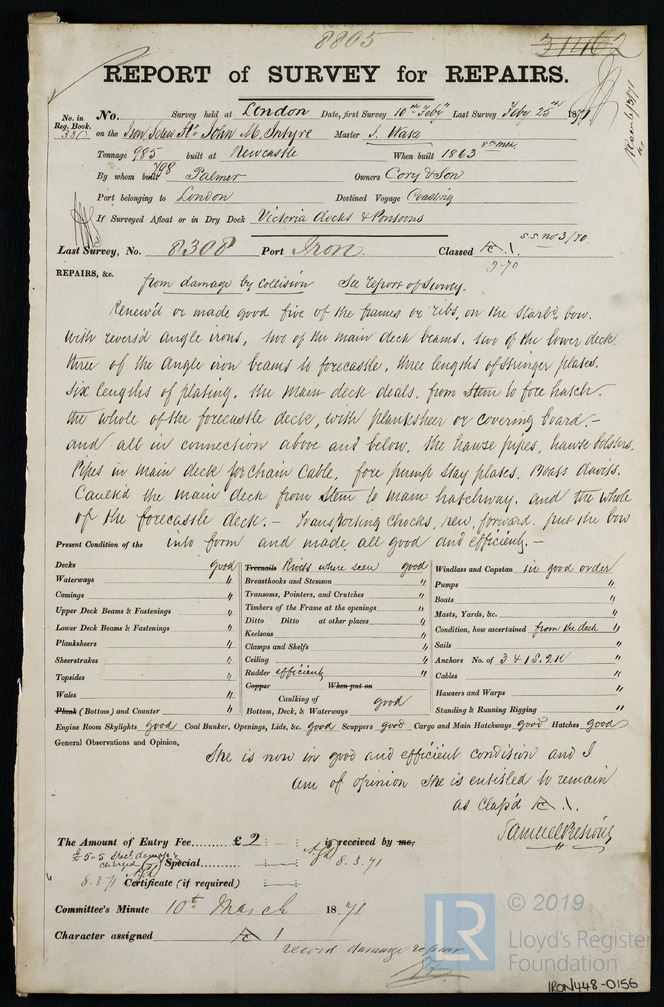 8805
31462
REPORT of SURVEY for REPAIRS.
No. in Reg. Book.
No. Survey held at London Date, first Survey 10th Feby Last Survey Feby 25th 1871
on the Iron Screw Str John McIntyre Master J. Wake
Tonnage 985 built at Newcastle When built 1863 8th mth
798
By whom built Palmer Owners Cory & Son
Port belonging to London Destined Voyage Coasting
If Surveyed Afloat or in Dry Dock Victoria docks & Pontoons
Last Survey, No. 8308 Port Iron. Classed A. 1. s.s. no 3/70.
9-70
REPAIRS, &c.
from damage by Collision See Report of Survey.
Renew'd or made good five of the frames or ribs, on the starbd bow.
with revers'd angle irons, two of the main deck beams. two of the lower deck
three of the angle iron beams to forecastle, three lengths of stringer plates.
six lengths of plating. the main deck deals. from Stem to fore hatch.
the whole of the forecastle deck, with planksheer or covering board.-
and all in connection above and below. the hawse pipes, hawse bolsters.
Pipes in main deck for chain Cable, fore pump stay plates. Boats davits.
Caulk'd the main deck from Stem to main hatchway. and the whole
of the forecastle deck.- Transporting chocks, new, forward. put the bow
Present Condition of the into form and made all good and efficient.-
Decks good
Waterways "
Comings "
Upper Deck Beams & Fastenings "
Lower Deck Beams & Fastenings "
Planksheers "
Sheerstrakes "
Topsides "
Wales "
Plank (Bottom) and Counter "
Treenails Rivets where seen good
Breasthooks and Stemson "
Transoms, Pointers, and Crutches "
Timbers of the Frame at the openings "
Ditto Ditto at other places "
Keelsons "
Clamps and Shelfs "
Ceiling "
Rudder efficient
Copper When put on
Caulking of
Bottom, Deck, & Waterways good
Windlass and Capstan in good order
Pumps "
Boats "
Masts, Yards, &c. "
Condition, how ascertained from the deck "
Sails "
Anchors No. of 3 & 1 S. 2 K "
Cables "
Hawsers and Warps "
Standing & Running Rigging "
Engine Room Skylights good Coal Bunker, Openings, Lids, &c. good Scuppers good Cargo and Main Hatchways good Hatches good
General Observations and Opinion,
She is now in good and efficient condition and I
am of opinion she is entitled to remain
as Class'd A. 1.
Samuel Preston
The Amount of Entry Fee...... £ 2 : : is received by me,
£5-5 Spec damage charged
Special.........
8.3.71
8.3.71 Certificate (if required)
Committee's Minute 10th March 1871
Character assigned A 1
record damage repair
© 2019
LR Lloyd's Register
Foundation
IRON448-0156